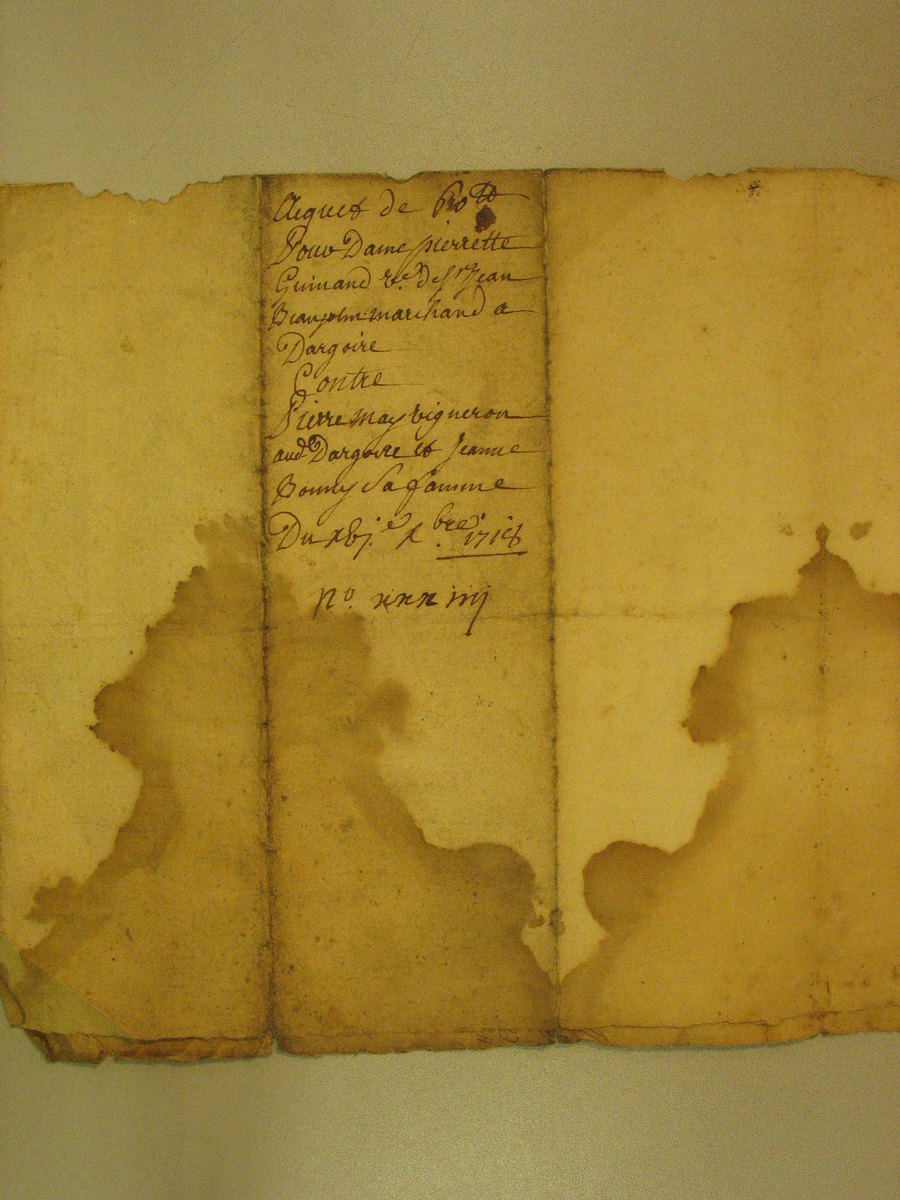 Acquet de 60ᵗᵗ
Pour Dame pierrette
Guinand vᵉ. de Sʳ Jean
Beaujolin marchand a
Dargoire
Contre
Pierre may vigneron
audᵗ Dargoire et Jeanne
Bonny Sa famme
Du xbj.ᵉ xᵇʳᵉ 1718
nᵒ. xxx iiij